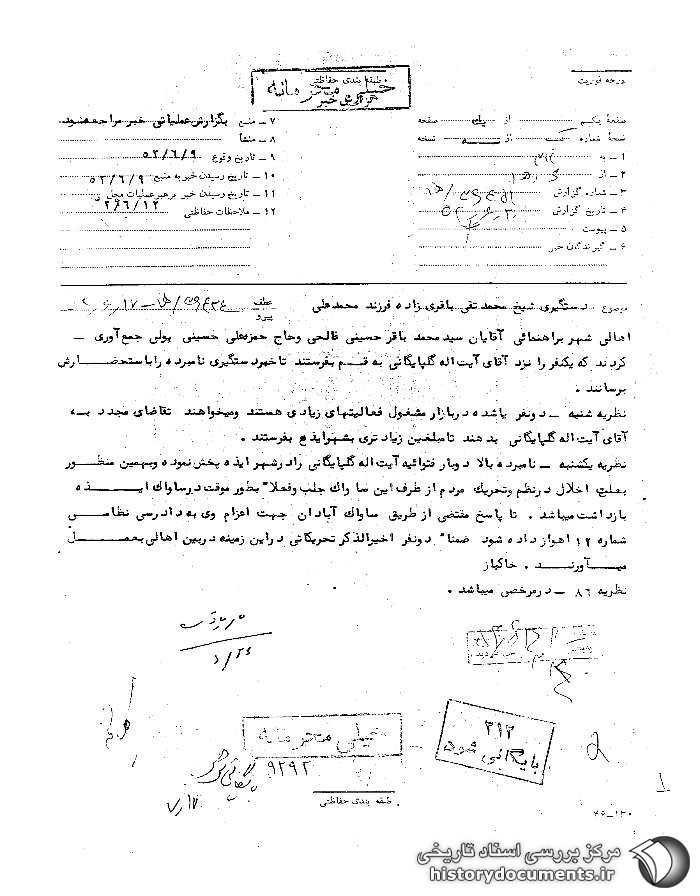 درجه فوریت
طبقه بندی حفاظتی
خیلی محرمانه
گزارش خبر
صفحهٔ یکم از یک صفحه
نسخهٔ شماره از نسخه
۱ ـ به ۳۱۲
۲ ـ از
۳ ـ شماره گزارش
۴ ـ تاریخ گزارش
۵ ـ پیوست
۶ ـ گیرندگان خبر
۷ ـ منبع بگزارش عملیاتی خبر مراجعه شود
۸ ـ منشأ
۹ ـ تاریخ وقوع ۵۲/۶/۹
۱۰ ـ تاریخ رسیدن خبر به منبع ۵۲/۶/۹
۱۱ ـ تاریخ رسیدن خبر برهبر عملیات محل
۱۲ ـ ملاحظات حفاظتی
موضوع : دستگیری شیخ محمد تقی باقری زاده فرزند محمد علی
عطف
پیرو
اهالی شهر براهنمائی آقایان سید محمد باقر حسینی فالحی وحاج حمزعلی حسینی پولی جمع آوری ـ
کردند که یکنفر را نزد آقای آیت اله گلپایگانی به قـم بفرستند تاخبر دستگیری نامبرده را باستحضـارش
برسانند .
نظریه شنبه ـ دونفر یاشده دربازار مشغول فعالیتهای زیادی هستند ومیخواهند تقاضای مجدد بـه
آقای آیت اله گلپایگانی بدهند تامبلغین زیاد تری بشهرایذج بفرستند .
نظریه یکشنبه ـ نامبرده بالا دوبار فتوائیه آیت اله گلپایگانی رادرشهر ایذه پخش نموده وبهمین منظـور
بعلت اخلال درنظم وتحریک مردم از طرف این ساواک جلب وفعلا" بطور موقت درساواک ایـذه
بازداشت میباشد . تا پاسخ مقتضی از طریق ساواک آبادان جهت اعزام وی به دادرسی نظامـی
شماره ۱۲ اهواز داده شود ضمنا" دونفر اخیرالذکر تحریکاتی دراین زمینه دربین اهالی بعمـل
میـآورنـد . خاکباز
نظریه ۸۶ ـ درمرخصی میباشد .
خیلی محرمانه
۳۱۲
بایگانی شود
۹۲۹۲
2
1
طبقه بندی حفاظتی
۴۵ـ۱۳۰
مرکز بررسی اسناد تاریخی
historydocuments.ir